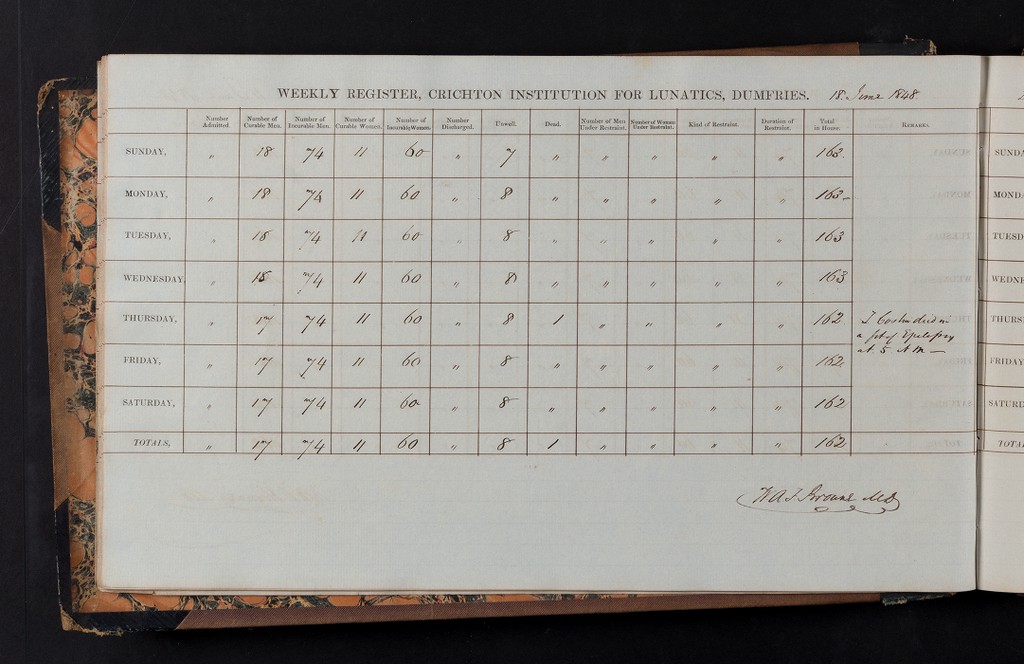 WEEKLY REGISTER, CRICHTON INSTITUTION FOR LUNATICS, DUMFRIES. 18 June 1848.
Number Admitted. Number of Curable Men. Number of Incurable Men. Number of Curable Women. Number of Incurable Women. Number Discharged. Unwell. Dead. Number of Men Under Restraint. Number of Women Under Restraint. Kind of Restraint. Duration of Restraint. Total in House. REMARKS.
SUNDAY, " 18 74 11 60 " 7 " " " " " 163.
MONDAY, " 18 74 11 60 " 8 " " " " " 163
TUESDAY, " 18 74 11 60 " 8 " " " " " 163
WEDNESDAY, " 18 74 11 60 " 8 " " " " " 163
THURSDAY, " 17 74 11 60 " 8 1 " " " " 162 died in
a fit of Epilepsy
at 5 AM
FRIDAY, " 17 74 11 60 " 8 " " " " " 162
SATURDAY, " 17 74 11 60 " 8 " " " " " 162
TOTALS, " 17 74 11 60 " 8 1 " " " " 162
W A F Browne MD
SUNDA
MONDA
TUESD
WEDNE
THURS
FRIDAY
SATURD
TOTA